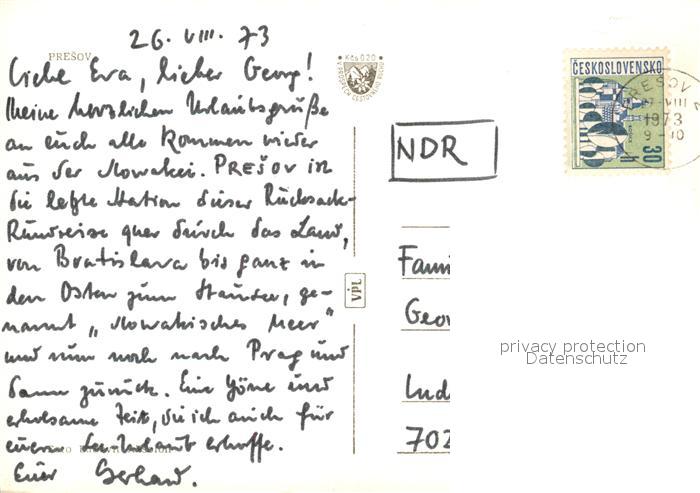 26. VIII. 73
PREŠOV
Liebe Eva, lieber Georg!
Meine herzlichen Urlaubsgrüße
an euch alle kommen wieder
aus der Slowakei. PREŠOV ist
die letzte Station dieser Rucksack-
Rundreise quer durch das Land,
von Bratislava bis ganz in
den Osten zum Stausee, ge-
nannt „Slowakisches Meer"
und nun noch nach Prag und
dann zurück. Eine schöne und
erholsame Zeit, die ich auch für
euren Urlaub erhoffe.
Euer Gerhard.
Kčs 0,20
VPL
NDR
Fami
Geor
Lud
702
ČESKOSLOVENSKO
30 h
PREŠOV
27.-VIII
1973
9-10
privacy protection
Datenschutz